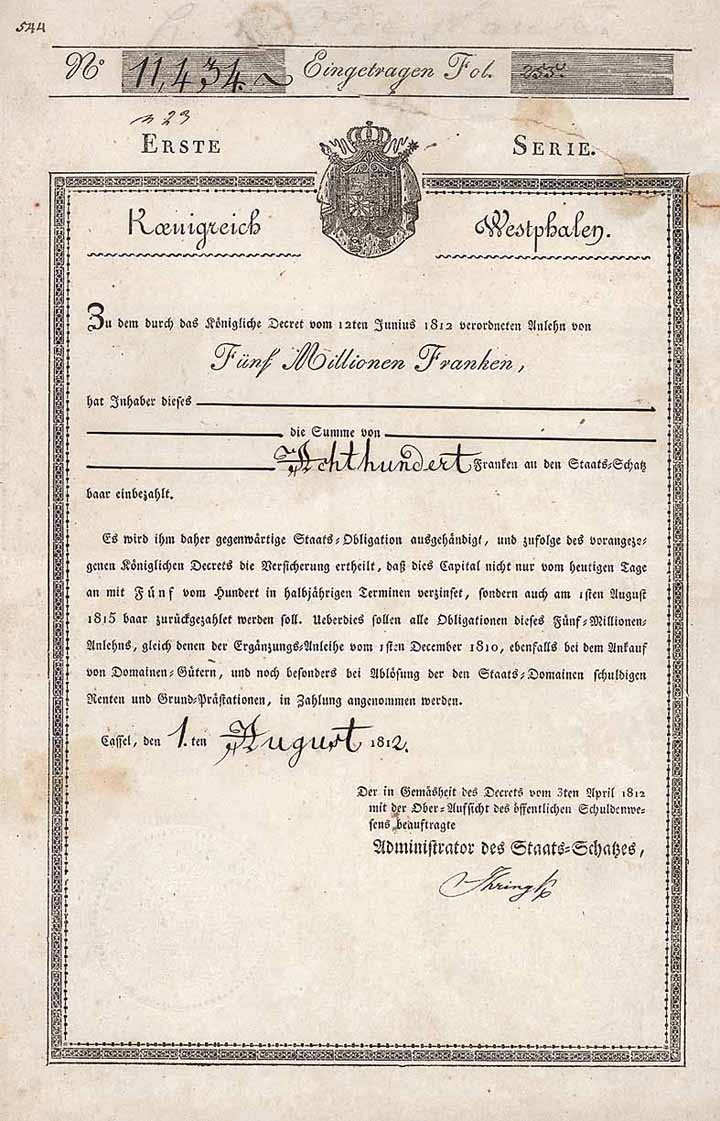 544
No 11,434. Eingetragen Fol. 255.
n 23
ERSTE SERIE.
Kœnigreich Westphalen.
Zu dem durch das Königliche Decret vom 12ten Junius 1812 verordneten Anlehn von
Fünf Millionen Franken,
hat Inhaber dieses
die Summe von
Achthundert Franken an den Staats-Schatz
baar einbezahlt.
Es wird ihm daher gegenwärtige Staats-Obligation ausgehändigt, und zufolge des vorangezo-
genen Königlichen Decrets die Versicherung ertheilt, daß dies Capital nicht nur vom heutigen Tage
an mit Fünf vom Hundert in halbjährigen Terminen verzinset, sondern auch am 1sten August
1815 baar zurückgezahlet werden soll. Ueberdies sollen alle Obligationen dieses Fünf-Millionen-
Anlehns, gleich denen der Ergänzungs-Anleihe vom 1sten December 1810, ebenfalls bei dem Ankauf
von Domainen-Gütern, und noch besonders bei Ablösung der den Staats-Domainen schuldigen
Renten und Grund-Prästationen, in Zahlung angenommen werden.
Cassel, den 1.ten August 1812.
Der in Gemäsheit des Decrets vom 3ten April 1812
mit der Ober-Aufsicht des öffentlichen Schuldenwe-
sens beauftragte
Administrator des Staats-Schatzes,